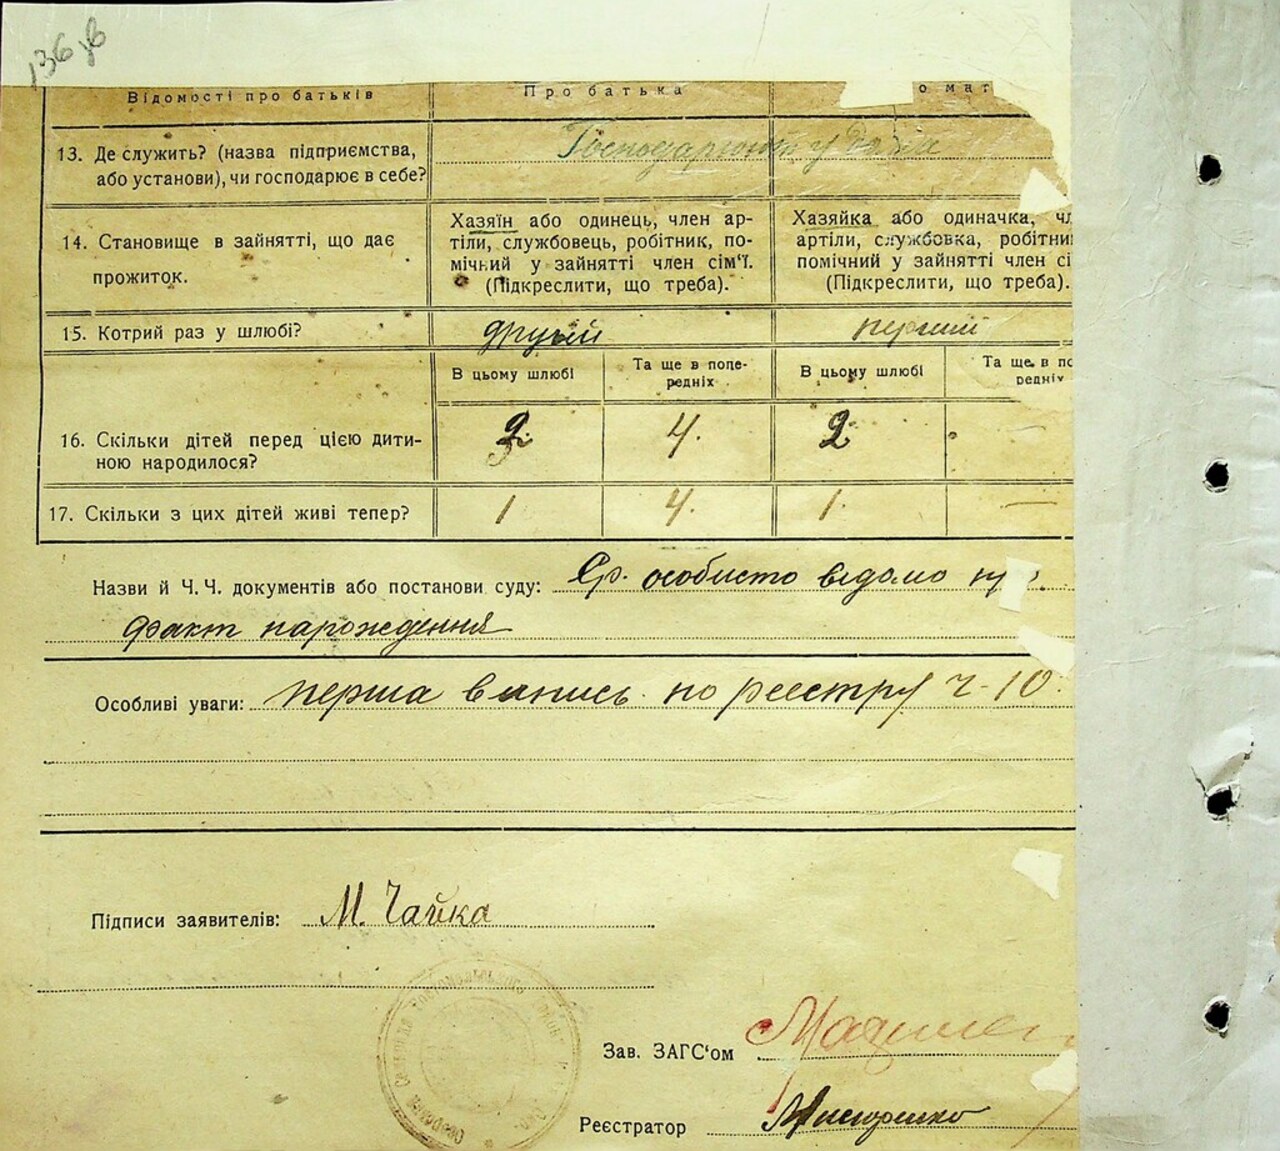 136 в
Відомості про батьків
Про батька
о мат
13. Де служить? (назва підприємства,
або установи), чи господарює в себе?
Господарюють у
14. Становище в зайнятті, що дає
прожиток.
Хазяїн або одинець, член ар-
тіли, службовець, робітник, по-
мічний у зайнятті член сім'ї.
(Підкреслити, що треба).
Хазяйка або одиначка, чл
артіли, службовка, робітни
помічний у зайнятті член сі
(Підкреслити, що треба).
15. Котрий раз у шлюбі?
другий
перший
В цьому шлюбі
Та ще в попе-
редніх
В цьому шлюбі
Та ще в по
редніх
16. Скільки дітей перед цією дити-
ною народилося?
2
4.
2
—
17. Скільки з цих дітей живі тепер?
1
4.
1.
—
Назви й Ч. Ч. документів або постанови суду: особисто відомо
факт нарождення
Особливі уваги: перша впись по реєстру Ч-10.
Підписи заявителів: М. Чайка
Зав. ЗАГС'ом
Реєстратор